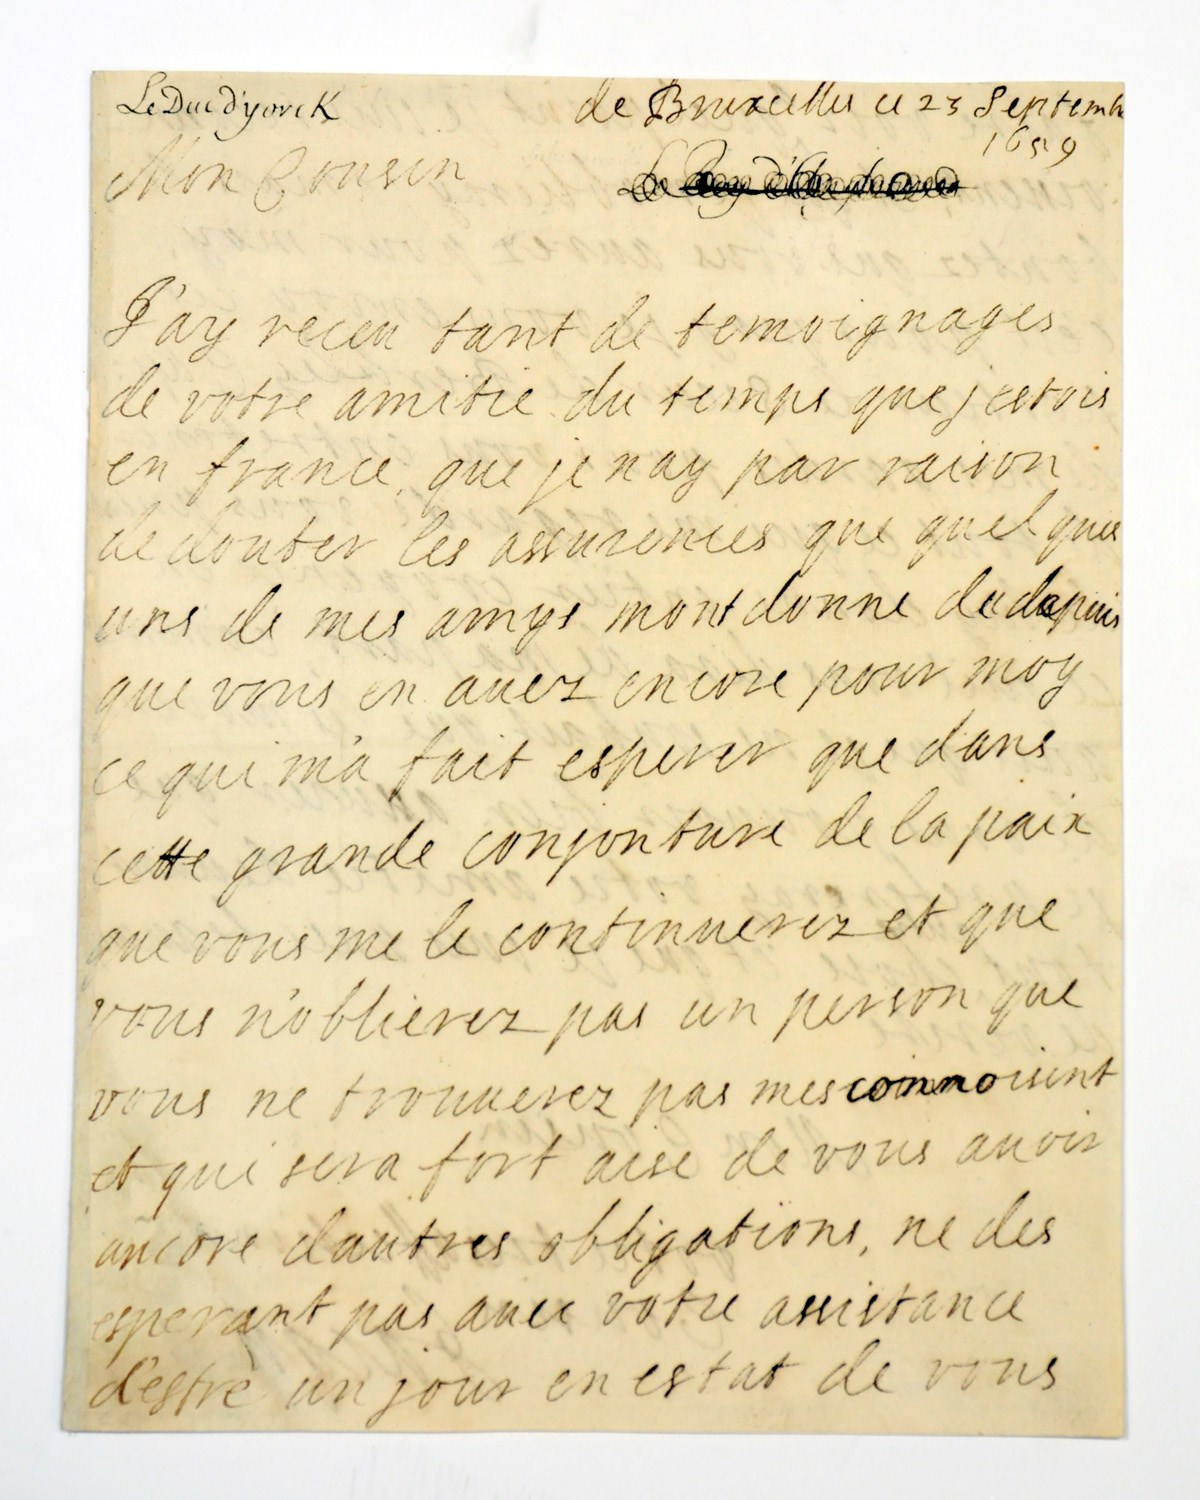 Le Duc d'yorcK
de Bruxcelles ce 23 Septembr
1659
Mon Cousin
J'ay receu tant de temoignages
de votre amitie du temps que jestois
en france, que je nay par raison
de douter les assurences que quelques
uns de mes amys mont donne dedepuis
que vous en auez encore pour moy
ce qui m'a fait esperer que dans
cette grande conjonture de la paix
que vous me le continuerez et que
vous n'oblierez pas un person que
vous ne trouuerez pas mesconnoisent
et qui sera fort aise de vous auoir
ancore dautres obligations, ne des
esperant pas auec votre assistance
d'estre un jour en estat de vous